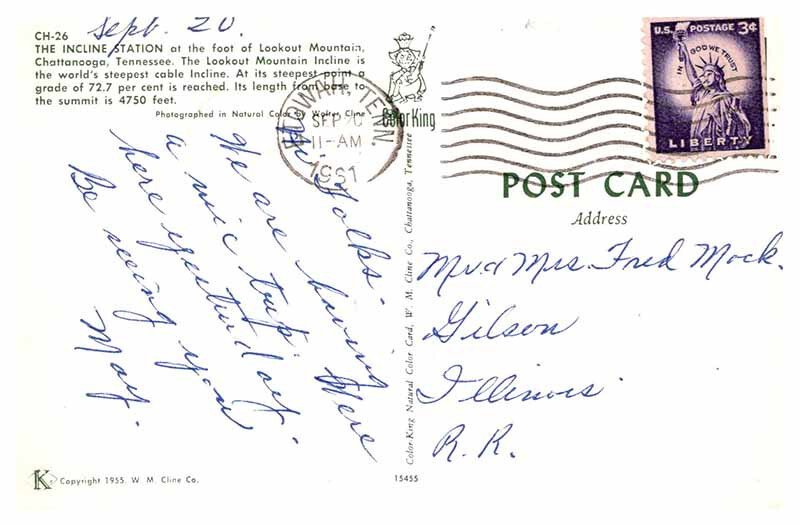 Sept. 20.
CH-26
THE INCLINE STATION at the foot of Lookout Mountain,
Chattanooga, Tennessee. The Lookout Mountain Incline is
the world's steepest cable Incline. At its steepest point a
grade of 72.7 per cent is reached. Its length from base to
the summit is 4750 feet.
Photographed in Natural Color by Walter Cline
ColorKing
TENN.
SEP 20
11-AM
1961
U.S. POSTAGE 3¢
IN GOD WE TRUST
LIBERTY
Hi Folks-
We are having
a nic trip. Were
here yesterday
Be seeing you
Mary.
Color-King Natural Color Card, W. M. Cline Co., Chattanooga, Tennessee
POST CARD
Address
Mr & Mrs. Fred Mock.
Gilson
Illinois
R. R.
K
Copyright 1955. W. M. Cline Co.
15455